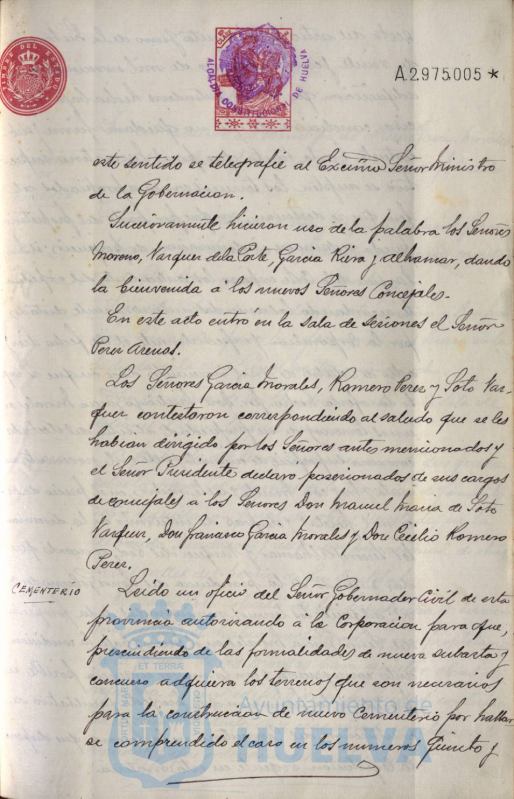 TIMBRE DEL ESTADO
ALCALDIA CONSTITUCIONAL DE HUELVA
A.2975.005 *
este sentido se telegrafie al Excmo Señor Ministro
de la Gobernacion.
Sucesivamente hicieron uso de la palabra los Señores
Moreno, Vazquez de la Corte, Garcia Riera y Alhamar, dando
la bienvenida á los nuevos Señores Concejales.
En este acto entró en la sala de sesiones el Señor
Perez Arenas.
Los Señores Garcia Morales, Romero Perez y Soto Vaz-
quez contestaron correspondiendo al saludo que se les
habian dirigido por los Señores antes mencionados y
el Señor Presidente declaró posesionados de sus cargos
de concejales á los Señores Don Manuel Maria de Soto
Vazquez, Don Francisco Garcia Morales y Don Cecilio Romero
Perez.
CEMENTERIO
Leido un oficio del Señor Gobernador Civil de esta
provincia autorizando á la Corporacion para que,
prescindiendo de las formalidades de nueva subasta y
concurso adquiera los terrenos que son necesarios
para la construccion de nuevo Cementerio por hallar
se comprendido el caso en los numeros Quinto y
ET TERRÆ
Ayuntamiento de
HUELVA